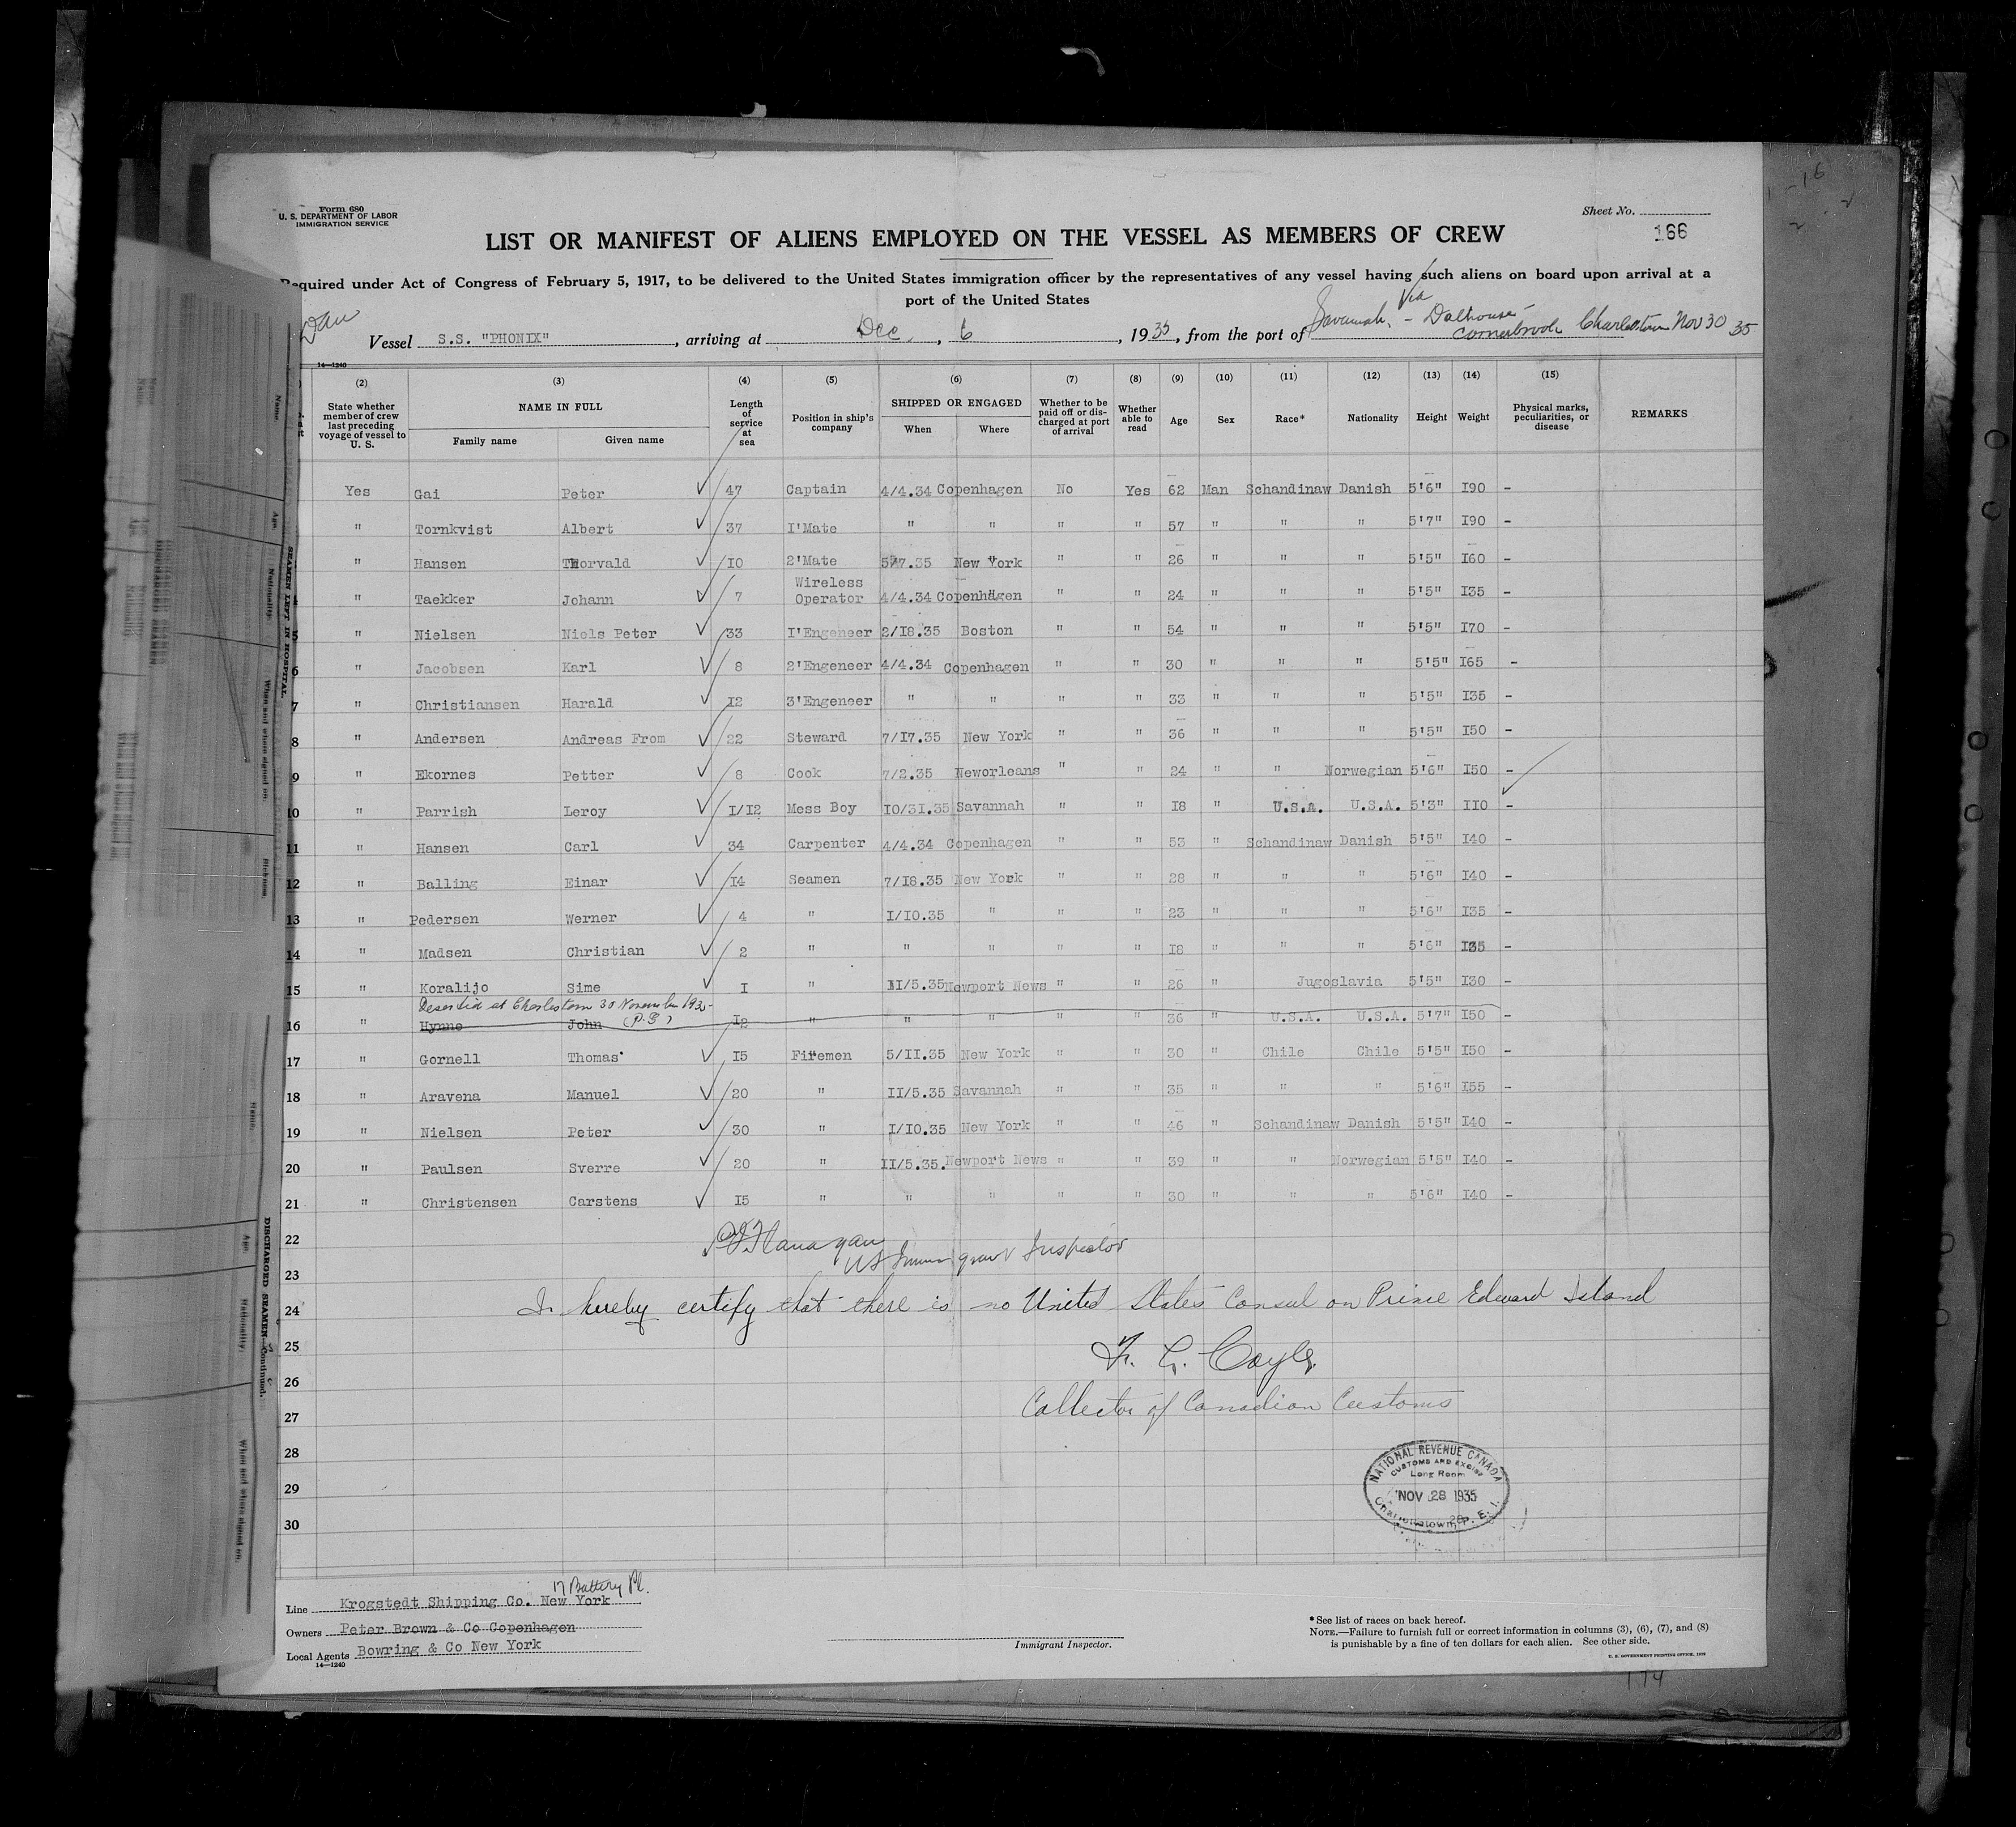 Form 680
U. S. DEPARTMENT OF LABOR
IMMIGRATION SERVICE
Sheet No.
166
LIST OR MANIFEST OF ALIENS EMPLOYED ON THE VESSEL AS MEMBERS OF CREW
Required under Act of Congress of February 5, 1917, to be delivered to the United States immigration officer by the representatives of any vessel having such aliens on board upon arrival at a
port of the United States
Dan
Vessel S.S. "PHONIX", arriving at Dec, 6, 1935, from the port of Savannah, - Via Dalhousie Cornerbrook Charlestown Nov 30 35
14—1240
(2) (3) (4) (5) (6) (7) (8) (9) (10) (11) (12) (13) (14) (15)
State whether member of crew last preceding voyage of vessel to U. S. NAME IN FULL Family name Given name Length of service at sea Position in ship's company SHIPPED OR ENGAGED When Where Whether to be paid off or discharged at port of arrival Whether able to read Age Sex Race* Nationality Height Weight Physical marks, peculiarities, or disease REMARKS
Yes Gai Peter 47 Captain 4/4.34 Copenhagen No Yes 62 Man Schandinaw Danish 5'6" I90 -
" Tornkvist Albert 37 I'Mate " " " " 57 " " " 5'7" I90 -
" Hansen Thorvald IO 2'Mate 5/7.35 New York " " 26 " " " 5'5" I60 -
4 " Taekker Johann 7 Wireless Operator 4/4.34 Copenhagen " " 24 " " " 5'5" I35 -
5 " Nielsen Niels Peter 33 I'Engeneer 2/I8.35 Boston " " 54 " " " 5'5" I70 -
6 " Jacobsen Karl 8 2'Engeneer 4/4.34 Copenhagen " " 30 " " " 5'5" I65 -
7 " Christiansen Harald I2 3'Engeneer " " " " 33 " " " 5'5" I35 -
8 " Andersen Andreas From 22 Steward 7/I7.35 New York " " 36 " " " 5'5" I50 -
9 " Ekornes Petter 8 Cook 7/2.35 Neworleans " " 24 " " Norwegian 5'6" I50 -
10 " Parrish Leroy I/I2 Mess Boy IO/3I.35 Savannah " " I8 " U.S.A. U.S.A. 5'3" IIO -
11 " Hansen Carl 34 Carpenter 4/4.34 Copenhagen " " 53 " Schandinaw Danish 5'5" I40 -
12 " Balling Einar I4 Seamen 7/I8.35 New York " " 28 " " " 5'6" I40 -
13 " Pedersen Werner 4 " I/IO.35 " " " 23 " " " 5'6" I35 -
14 " Madsen Christian 2 " " " " " I8 " " " 5'6" I35 -
15 " Koralijo Sime I " II/5.35 Newport News " " 26 " Jugoslavia 5'5" I30 -
Deserted at Charlestown 30 November 1935
16 " Hynne John (P.G) I2 " " " " " 36 " U.S.A. U.S.A. 5'7" I50 -
17 " Gornell Thomas I5 Firemen 5/II.35 New York " " 30 " Chile Chile 5'5" I50 -
18 " Aravena Manuel 20 " II/5.35 Savannah " " 35 " " " 5'6" I55 -
19 " Nielsen Peter 30 " I/IO.35 New York " " 46 " Schandinaw Danish 5'5" I40 -
20 " Paulsen Sverre 20 " II/5.35. Newport News " " 39 " " Norwegian 5'5" I40 -
21 " Christensen Carstens I5 " " " " " 30 " " " 5'6" I40 -
22 Flanagan
US Immigrant Inspector
23
24 I hereby certify that there is no United States Consul on Prince Edward Island
25 F. G. Coyle
26
27 Collector of Canadian Customs
28
29
30
NATIONAL REVENUE CANADA
CUSTOMS AND EXCISE
Long Room
NOV 28 1935
Charlottetown, P. E. I.
17 Battery Pl.
Line Krogstedt Shipping Co. New York
Owners Peter Brown & Co Copenhagen
Local Agents Bowring & Co New York
14—1240
Immigrant Inspector.
*See list of races on back hereof.
NOTE.—Failure to furnish full or correct information in columns (3), (6), (7), and (8)
is punishable by a fine of ten dollars for each alien. See other side.
U. S. GOVERNMENT PRINTING OFFICE
174
SEAMEN LEFT IN HOSPITAL.
DISCHARGED SEAMEN—Continued.
Name.
Age.
Nationality.
When and where signed on.